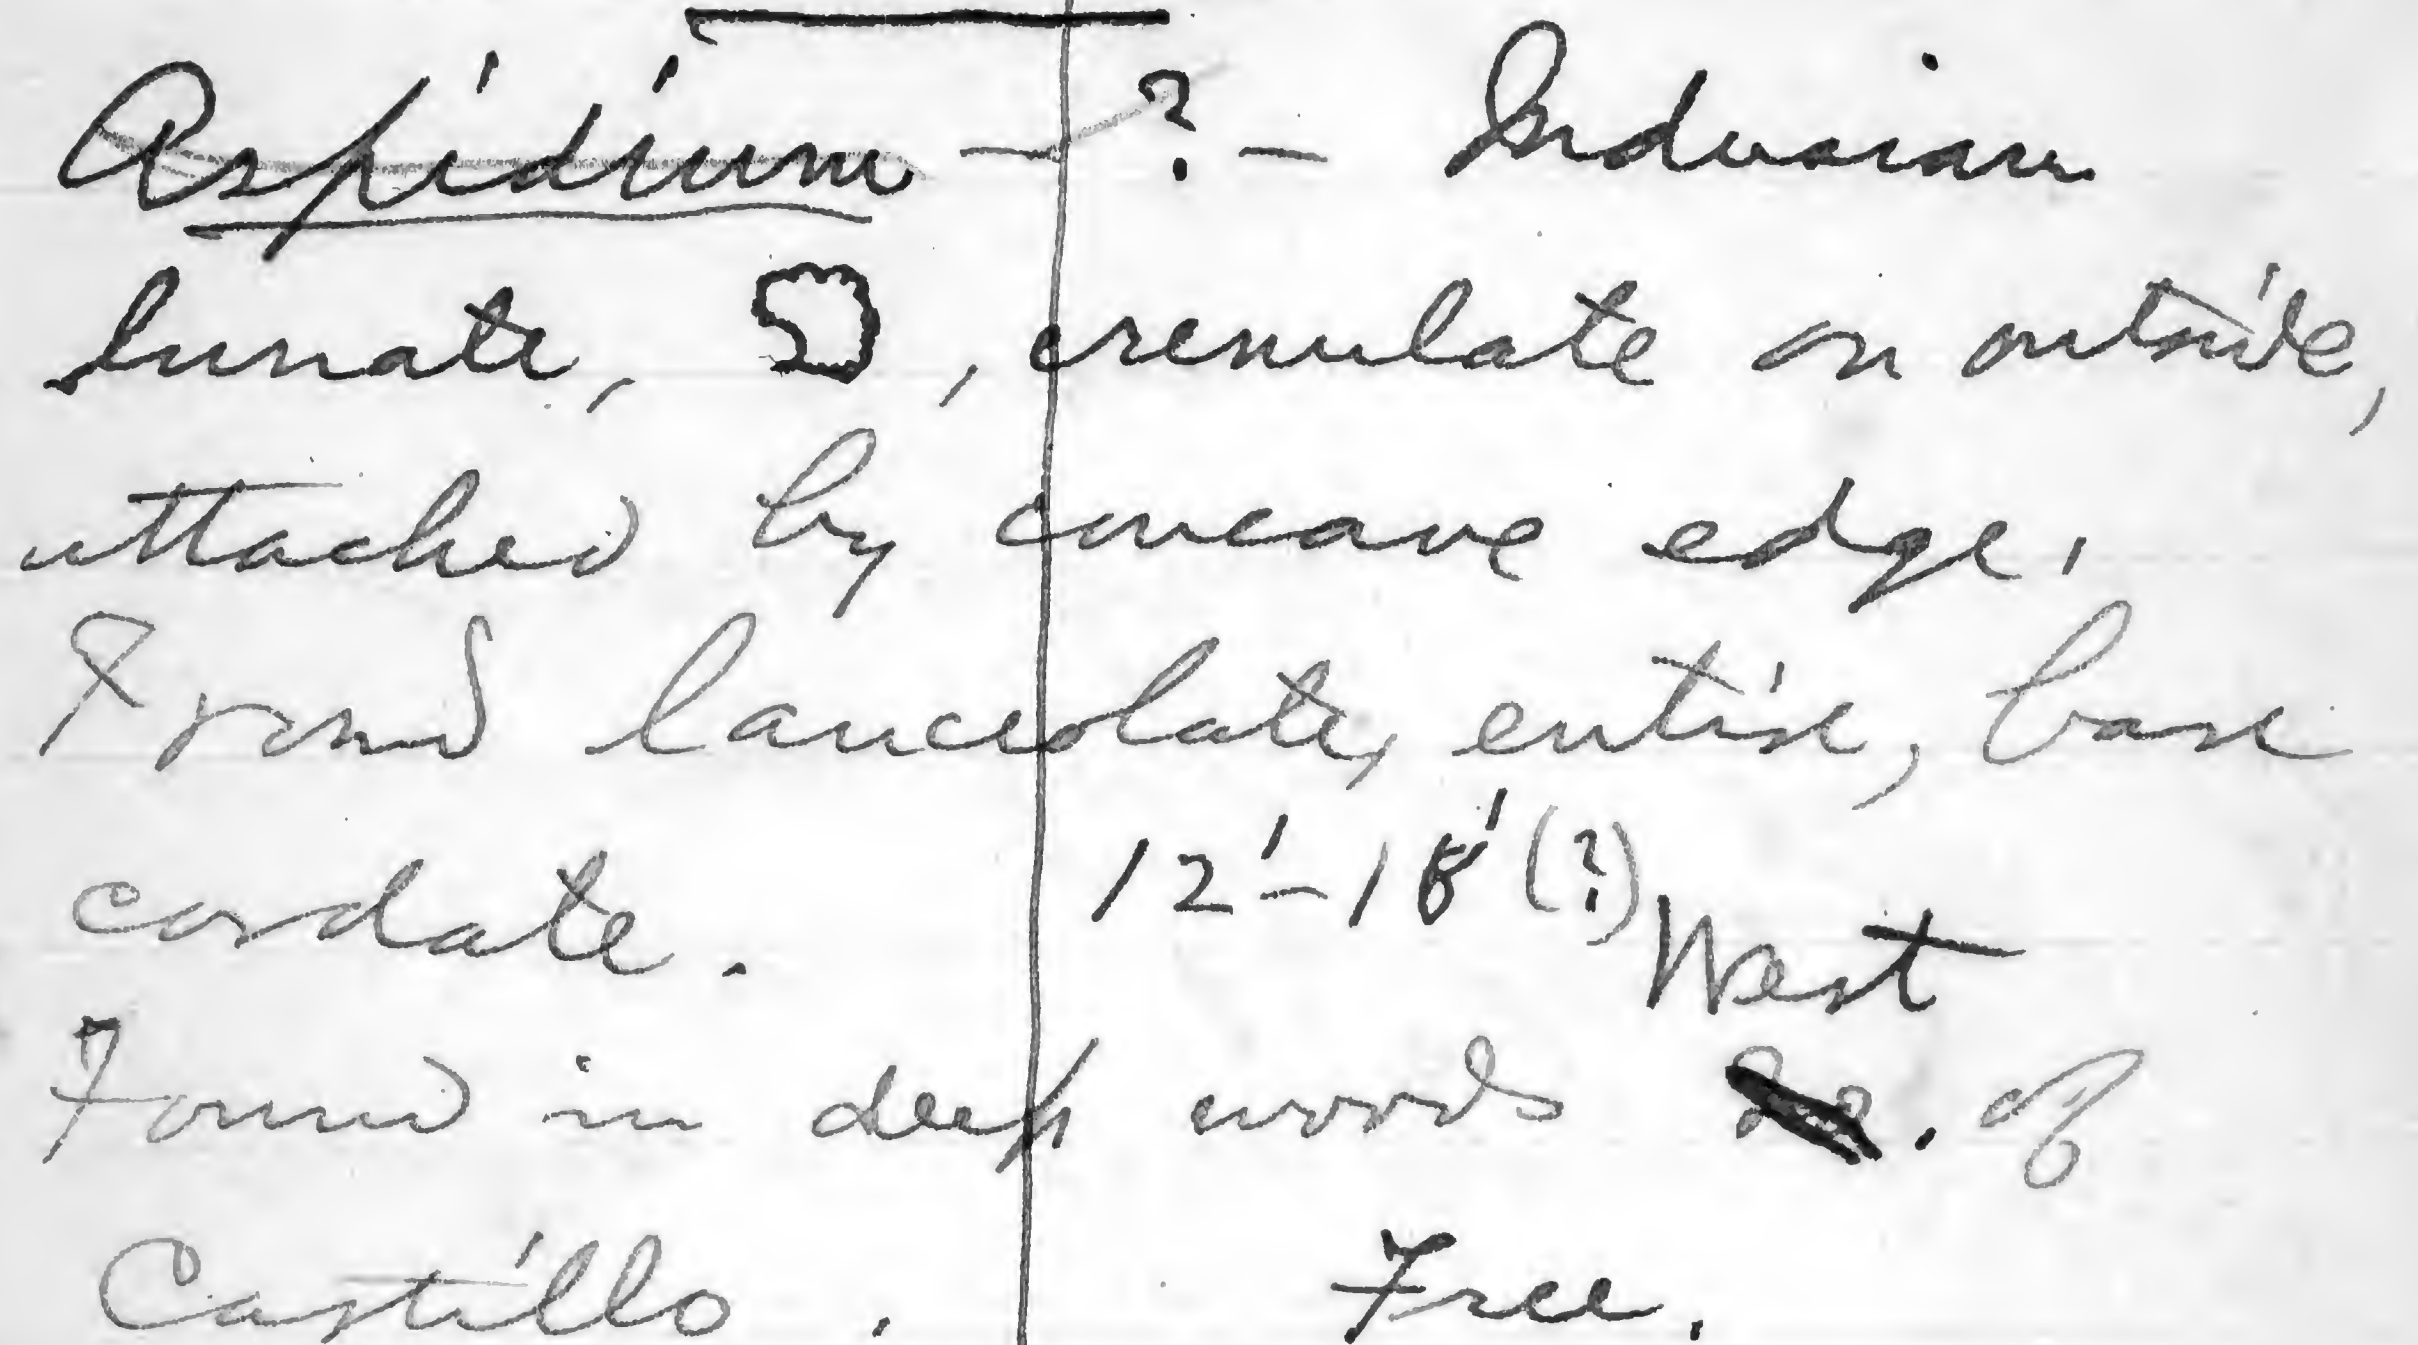 Aspidium - ? - Indusium
lunate, , crenulate on outside,
attached by concave edge.
Frond lanceolate, entire, base
cordate. 12'-18' (?)
West
Found in deep woods . of
Castillo. Free.